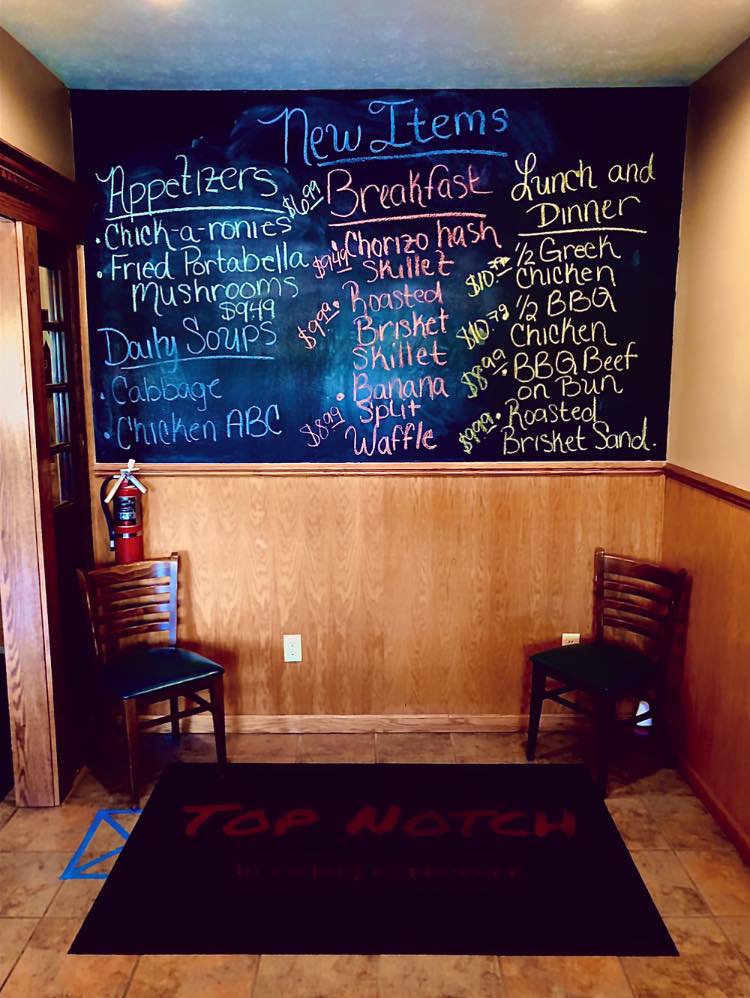 New Items
Appetizers
• Chick-a-ronies $6.99
• Fried Portabella
Mushrooms
$9.49
Daily Soups
• Cabbage
• Chicken ABC
Breakfast
$9.49 • Chorizo hash
Skillet
$9.99 • Roasted
Brisket
Skillet
• Banana
Split
$8.99 Waffle
Lunch and
Dinner
$10.79 1/2 Greek
Chicken
$10.79 1/2 BBQ
Chicken
$8.99 • BBQ Beef
on Bun
$9.99 • Roasted
Brisket Sand.
TOP NOTCH